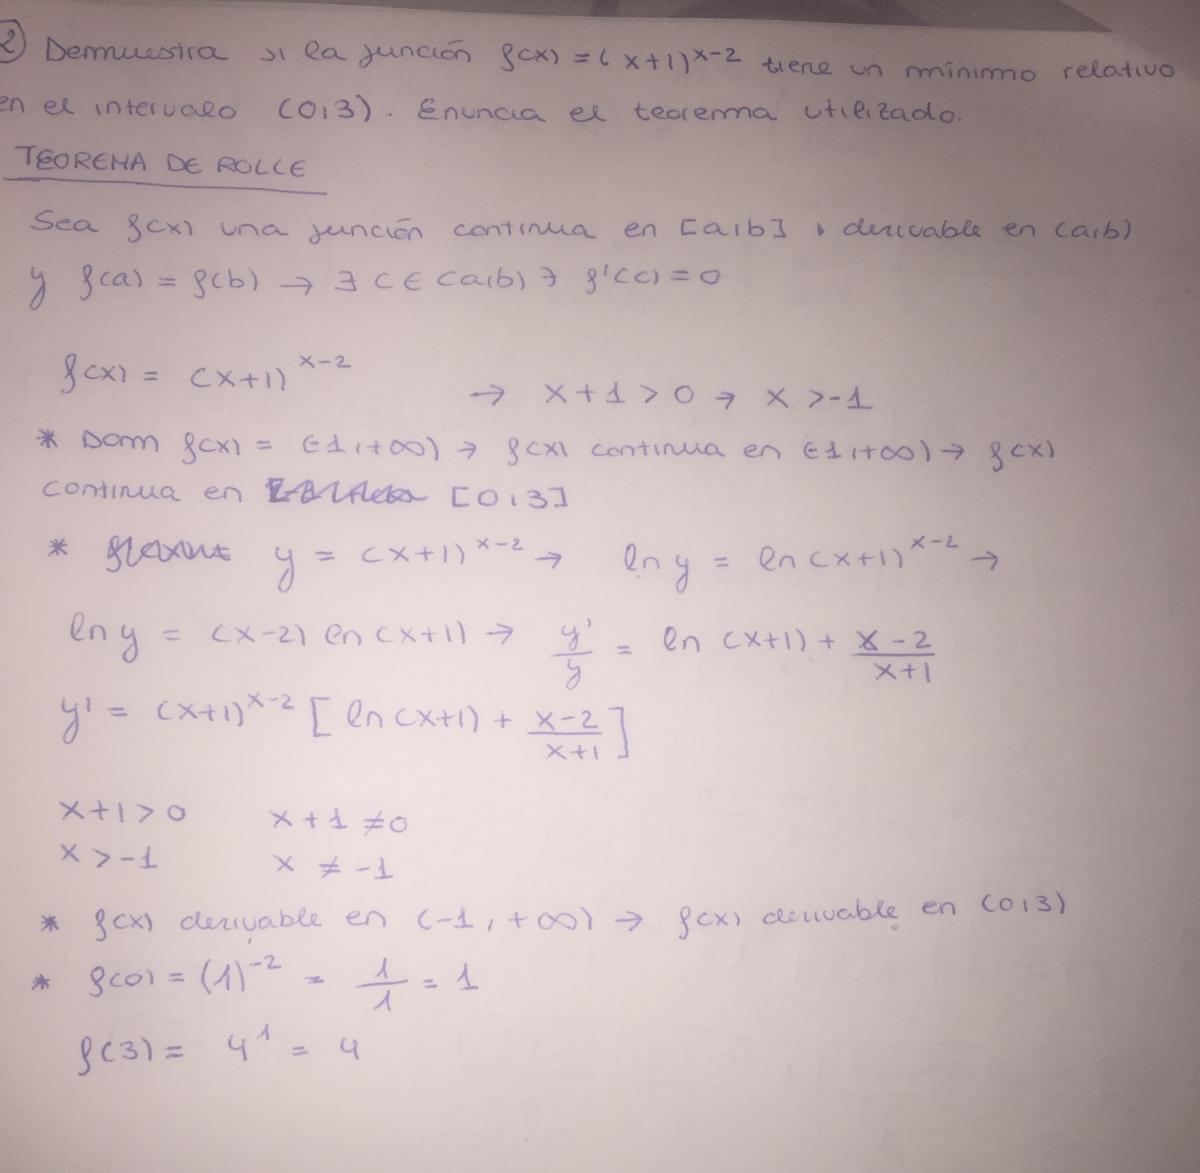 2) Demuestra si la función f(x) = (x+1)^x-2 tiene un mínimo relativo
en el intervalo (0,3). Enuncia el teorema utilizado.
TEOREMA DE ROLLE
Sea f(x) una función continua en [a,b], derivable en (a,b)
y f(a) = f(b) → ∃ c ∈ (a,b) ∋ f'(c) = 0
f(x) = (x+1)^x-2 → x+1 > 0 → x > -1
* Dom f(x) = (-1,+∞) → f(x) continua en (-1,+∞) → f(x)
continua en [0,3]
* y = (x+1)^x-2 → ln y = ln (x+1)^x-2 →
ln y = (x-2) ln (x+1) → y'/y = ln (x+1) + x-2/x+1
y' = (x+1)^x-2 [ ln (x+1) + x-2/x+1 ]
x+1 > 0 x+1 ≠ 0
x > -1 x ≠ -1
* f(x) derivable en (-1,+∞) → f(x) derivable en (0,3)
* f(0) = (1)^-2 = 1/1 = 1
f(3) = 4^1 = 4